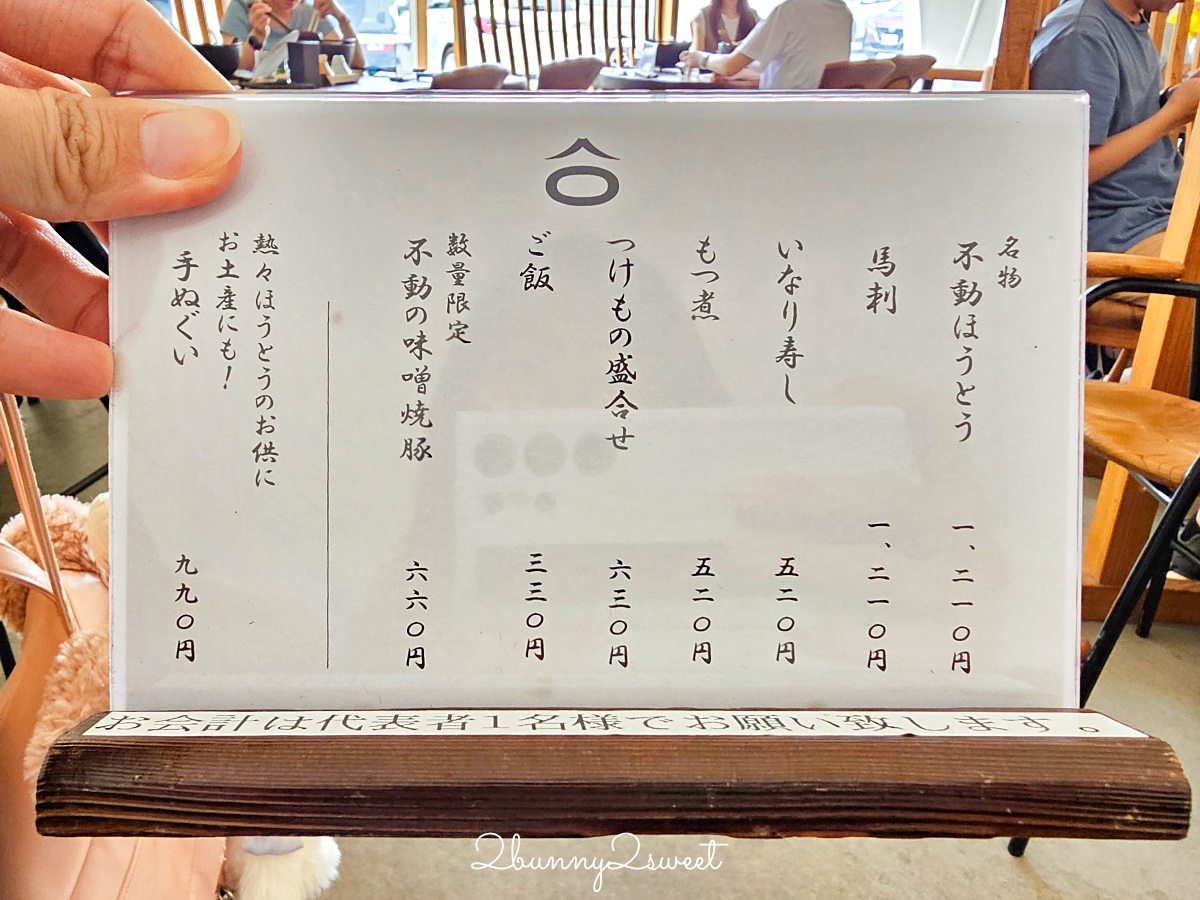 名物
不動ほうとう 一、二一〇円
馬刺 一、二一〇円
いなり寿し 五二〇円
もつ煮 五二〇円
つけもの盛合せ 六三〇円
ご飯 三三〇円
数量限定
不動の味噌焼豚 六六〇円
熱々ほうとうのお供に
お土産にも!
手ぬぐい 九九〇円
お会計は代表者1名様でお願い致します。
2bunny2sweet